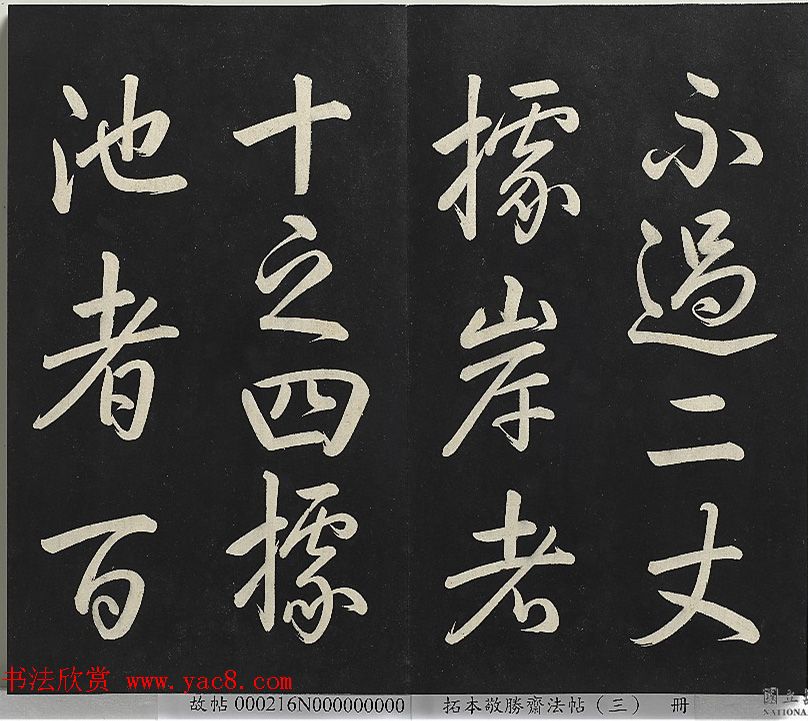 不過二丈
據岸者
十之四據
池者百
书法欣赏 www.yac8.com
故帖000216N000000000 拓本敬勝齋法帖（三） 冊
國立
NATIONA